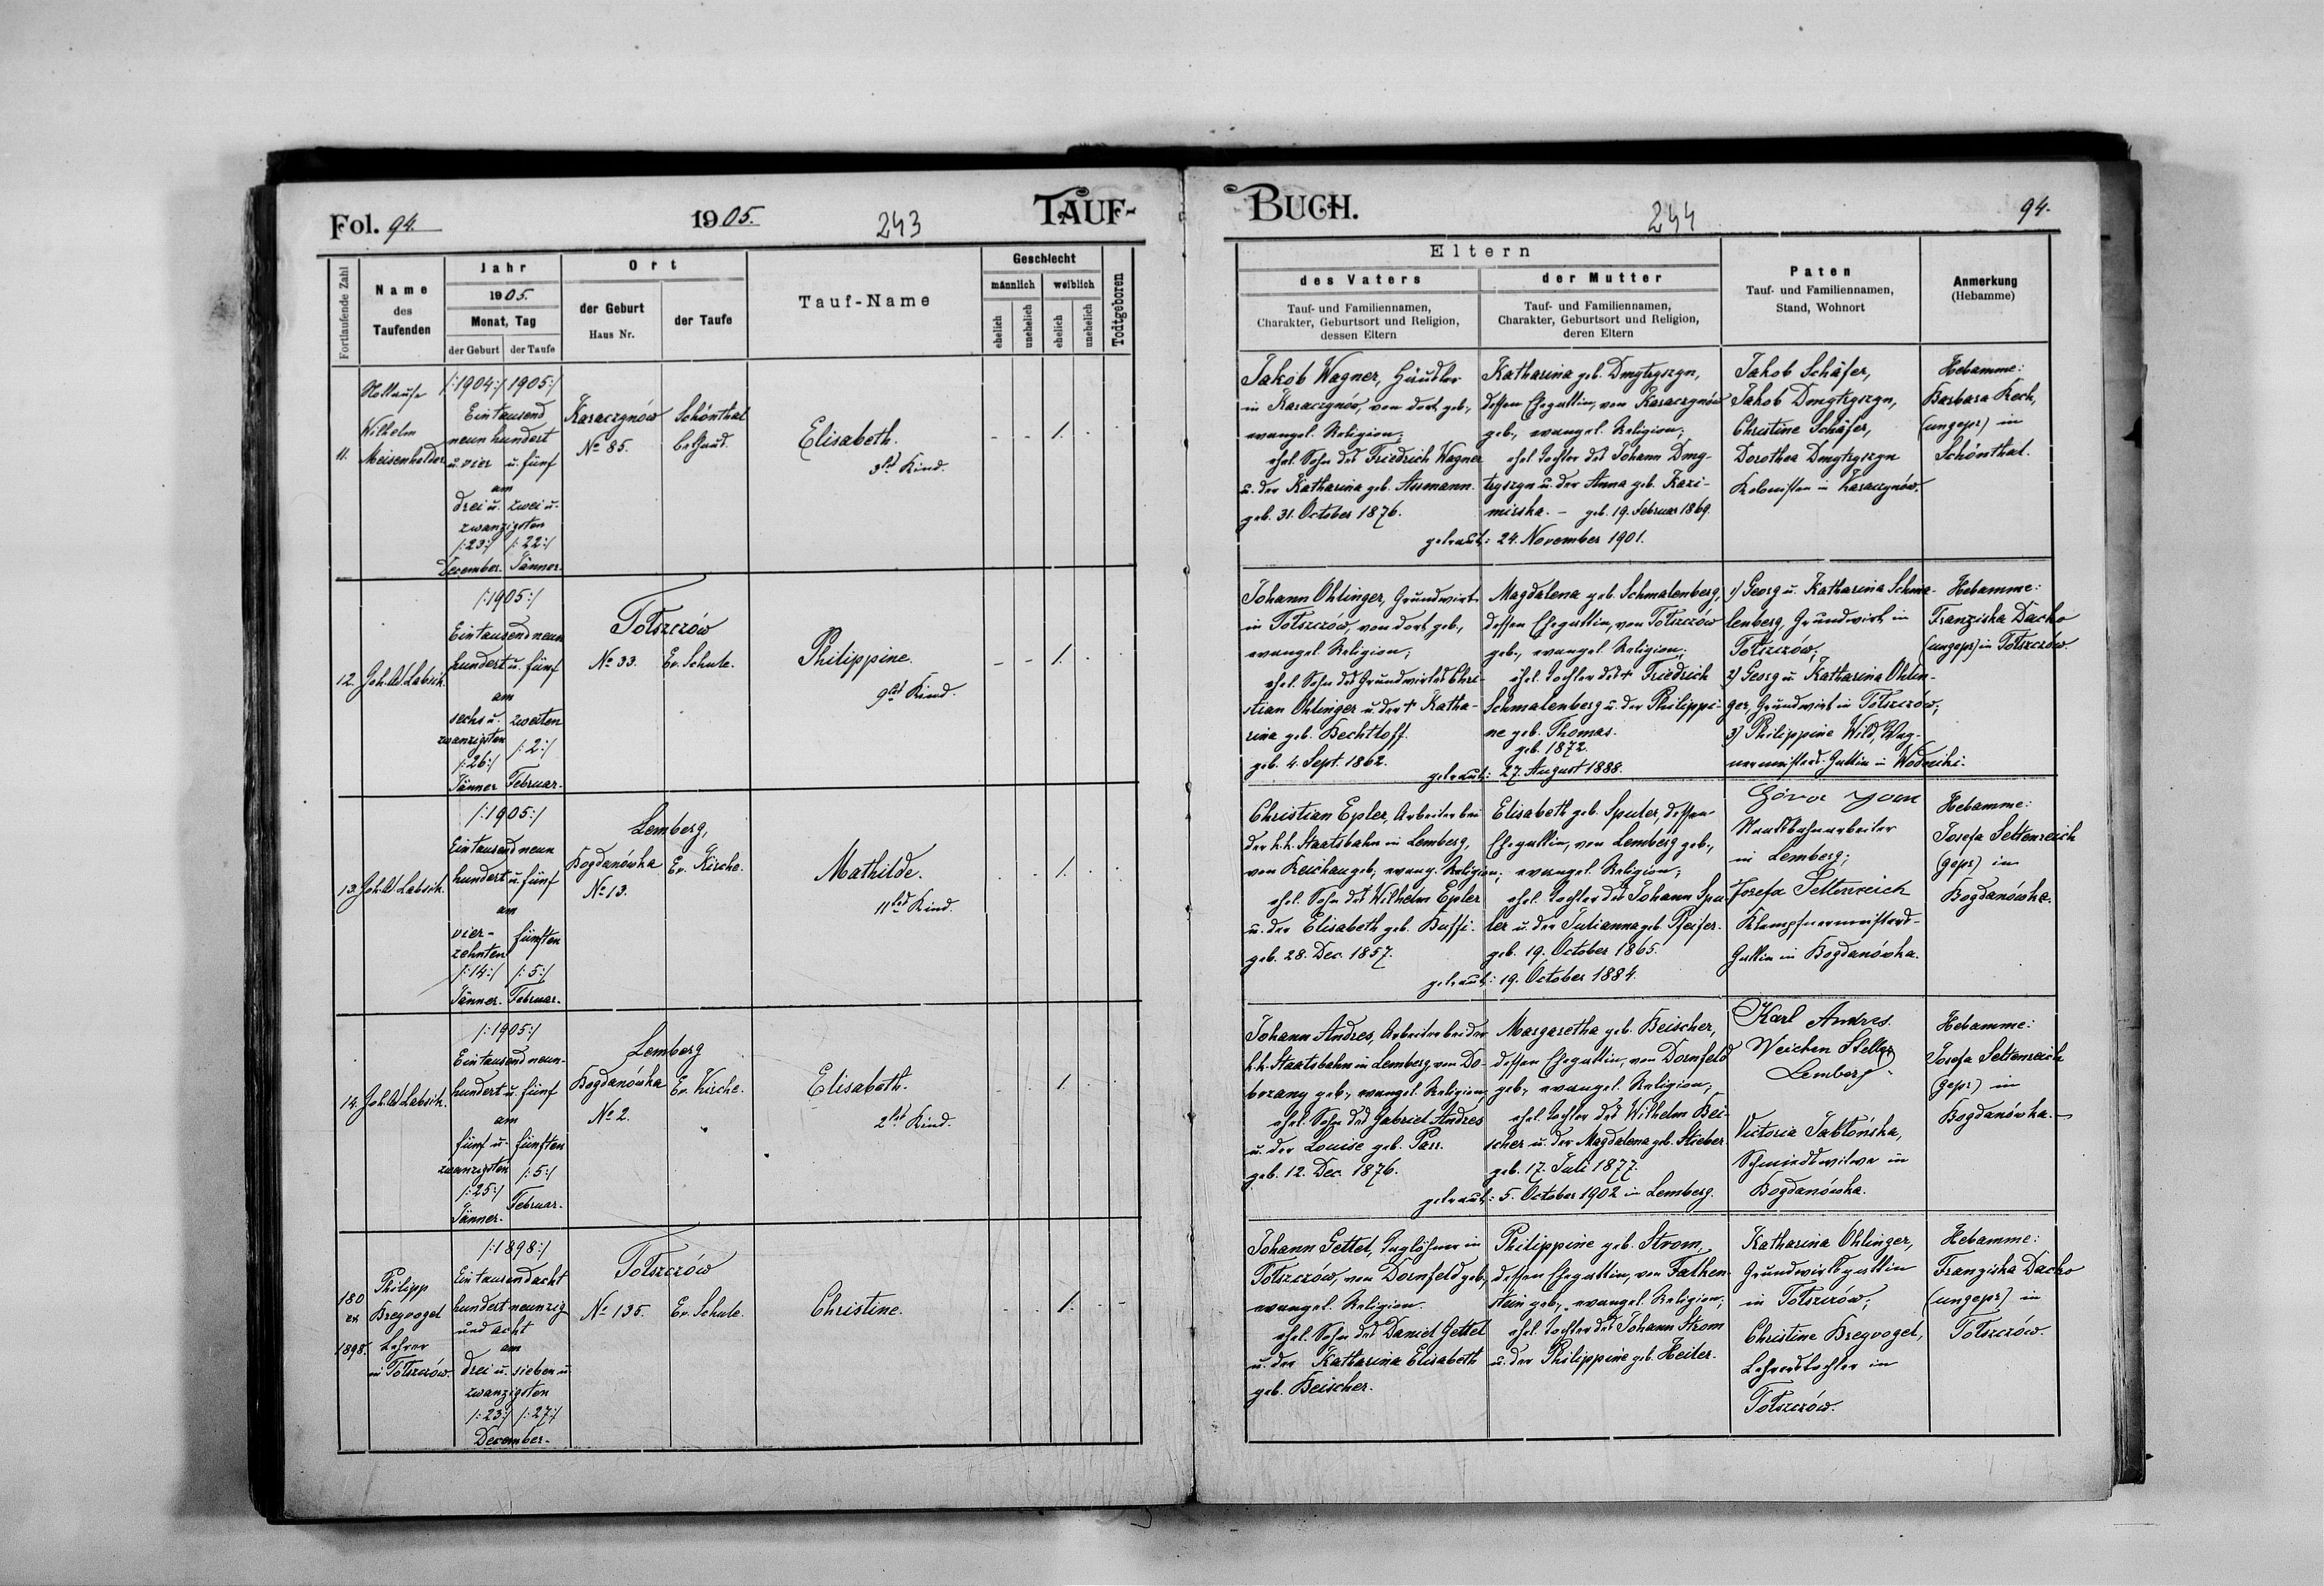 Fol. 94. 1905. 243 TAUF-
Fortlaufende Zahl
Name des Taufenden
Jahr
1905.
Monat, Tag
der Geburt der Taufe
Ort
der Geburt Haus Nr.
der Taufe
Tauf-Name
Geschlecht
männlich weiblich
ehelich unehelich ehelich unehelich
Todtgeboren
11.
Nottaufe
Wilhelm
Meisenhelder
/:1904:/ 1905:/
Ein tausend
neun hundert
u. vier u. fünf
am
drei u. zwei u.
zwanzigsten
/:23:/ /:22:/
December. Jänner.
Karaczynów
No 85.
Schönthal
Elisabeth.
3tes Kind.
- - 1. . .
12. Joh. Labsik.
/:1905:/
Ein tausend neun
hundert u. fünf
am
sechs u. zweiten
zwanzigsten
/:26:/ /:2:/
Jänner Februar.
Tołszczów
No 33. Ev. Schule.
Philippine.
9tes Kind.
- - 1. . .
13. Joh. Labsik.
/:1905:/
Ein tausend neun
hundert u. fünf
am
vier- fünften
zehnten
/:14:/ /:5:/
Jänner. Februar.
Lemberg,
Bogdanówka Ev. Kirche.
No 13.
Mathilde.
11tes Kind.
. . 1. . .
14. Joh. Labsik.
/:1905:/
Ein tausend neun-
hundert u. fünf
am
fünf u. fünften
zwanzigsten /:5:/
/:25:/
Jänner. Februar.
Lemberg
Bogdanówka Ev. Kirche.
No 2.
Elisabeth.
2tes Kind.
. . 1. . .
180
ex
1898.
Philipp
Bregvogel
Lehrer
in Tołszczów.
/:1898:/
Ein tausend acht
hundert neunzig
und acht
am
drei u. sieben u.
zwanzigsten
/:23:/ /:27:/
December.
Tołszczów
No 135. Ev. Schule.
Christine.
. . 1. . -
BUCH. 244 94.
Eltern
des Vaters
Tauf- und Familiennamen,
Charakter, Geburtsort und Religion,
dessen Eltern
der Mutter
Tauf- und Familiennamen,
Charakter, Geburtsort und Religion,
deren Eltern
Paten
Tauf- und Familiennamen,
Stand, Wohnort
Anmerkung
(Hebamme)
Jakob Wagner, Häusler
in Karaczynów, von dort geb.,
evangel. Religion;
ehel. Sohn des Friedrich Wagner
u. der Katharina geb. Assmann.
geb. 31. October 1876.
Katharina geb. Dmytryszyn,
dessen Ehegattin, von Karaczynów
geb., evangel. Religion;
ehel. Tochter des Johann Dmy-
tryszyn u. der Anna geb. Kazi-
mirska. - geb. 19. Februar 1869.
getraut: 24. November 1901.
Jakob Schäfer,
Jakob Dmytryszyn,
Christine Schäfer,
Dorothea Dmytryszyn
Kolonisten in Karaczynów.
Hebamme:
Barbara Koch,
(ungepr) in
Schönthal.
Johann Ohlinger, Grundwirt
in Tołszczów, von dort geb.,
evangel. Religion;
ehel. Sohn des Grundwirtes Chri-
stian Ohlinger u. der + Katha-
rina geb. Bechtloff.
geb. 4. Sept. 1862.
Magdalena geb. Schmalenberg,
dessen Ehegattin, von Tołszczów
geb., evangel. Religion;
ehel. Tochter des + Friedrich
Schmalenberg u. der Philippi-
ne geb. Thomas.
geb. 1872.
getraut: 27. August 1888.
1) Georg u. Katharina Schma-
lenberg, Grundwirt in
Tołszczów;
2) Georg u. Katharina Ohlin-
ger, Grundwirt in Tołszczów;
3) Philippine Wild, Wag-
nermeisters-Gattin in
Hebamme:
Franziska Dacko
(ungepr) in Tołszczów.
Christian Epler, Arbeiter bei
der k.k. Staatsbahn in Lemberg,
von Reichau geb., evang. Religion;
ehel. Sohn des Wilhelm Epler
u. der Elisabeth geb. Buffi.
geb. 28. Dec. 1857.
Elisabeth geb. Sputer, dessen
Ehegattin, von Lemberg geb.,
evangel. Religion;
ehel. Tochter des Johann Spu-
ter u. der Julianna geb. Pfeifer.
geb. 19. October 1865.
getraut: 19. October 1884.
Staatsbahnarbeiter
in Lemberg;
Josefa Settenreich
Klempfnermeisters-
Gattin in Bogdanówka.
Hebamme:
Josefa Settenreich
(gepr) in
Bogdanówka.
Johann Andres, Arbeiter bei der
k.k. Staatsbahn in Lemberg von Do-
brzany geb., evangel. Religion;
ehel. Sohn des Gabriel Andres
u. der Louise geb. Parr.
geb. 12. Dec. 1876.
Margaretha geb. Beischer,
dessen Ehegattin, von Dornfeld
geb., evangel. Religion;
ehel. Tochter des Wilhelm Bei-
scher u. der Magdalena geb. Stieber
geb. 17. Juli 1877.
getraut: 5. October 1902 in Lemberg.
Karl Andres.
Weichen Steller
Lemberg
Victoria Jabłońska,
Schmiedswitwe in
Bogdanówka.
Hebamme:
Josefa Settenreich
(gepr) in
Bogdanówka.
Johann Gettel, Taglöhner in
Tołszczów, von Dornfeld geb.,
evangel. Religion.
ehel. Sohn des Daniel Gettel
u. der Katharina Elisabeth
geb. Beischer.
Philippine geb. Strom,
dessen Ehegattin, von Falken-
stein geb., evangel. Religion;
ehel. Tochter des Johann Strom
u. der Philippine geb. Heiler.
Katharina Ohlinger,
Grundwirtsgattin
in Tołszczów;
Christine Bregvogel,
Lehrerstochter in
Tołszczów.
Hebamme:
Franziska Dacko
(ungepr) in
Tołszczów.